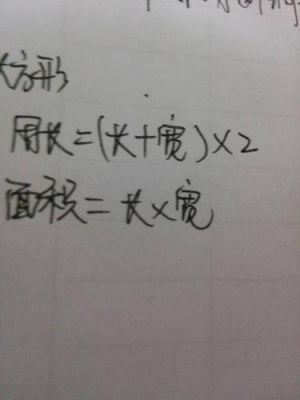 长方形
周长=(长+宽)×2
面积=长×宽